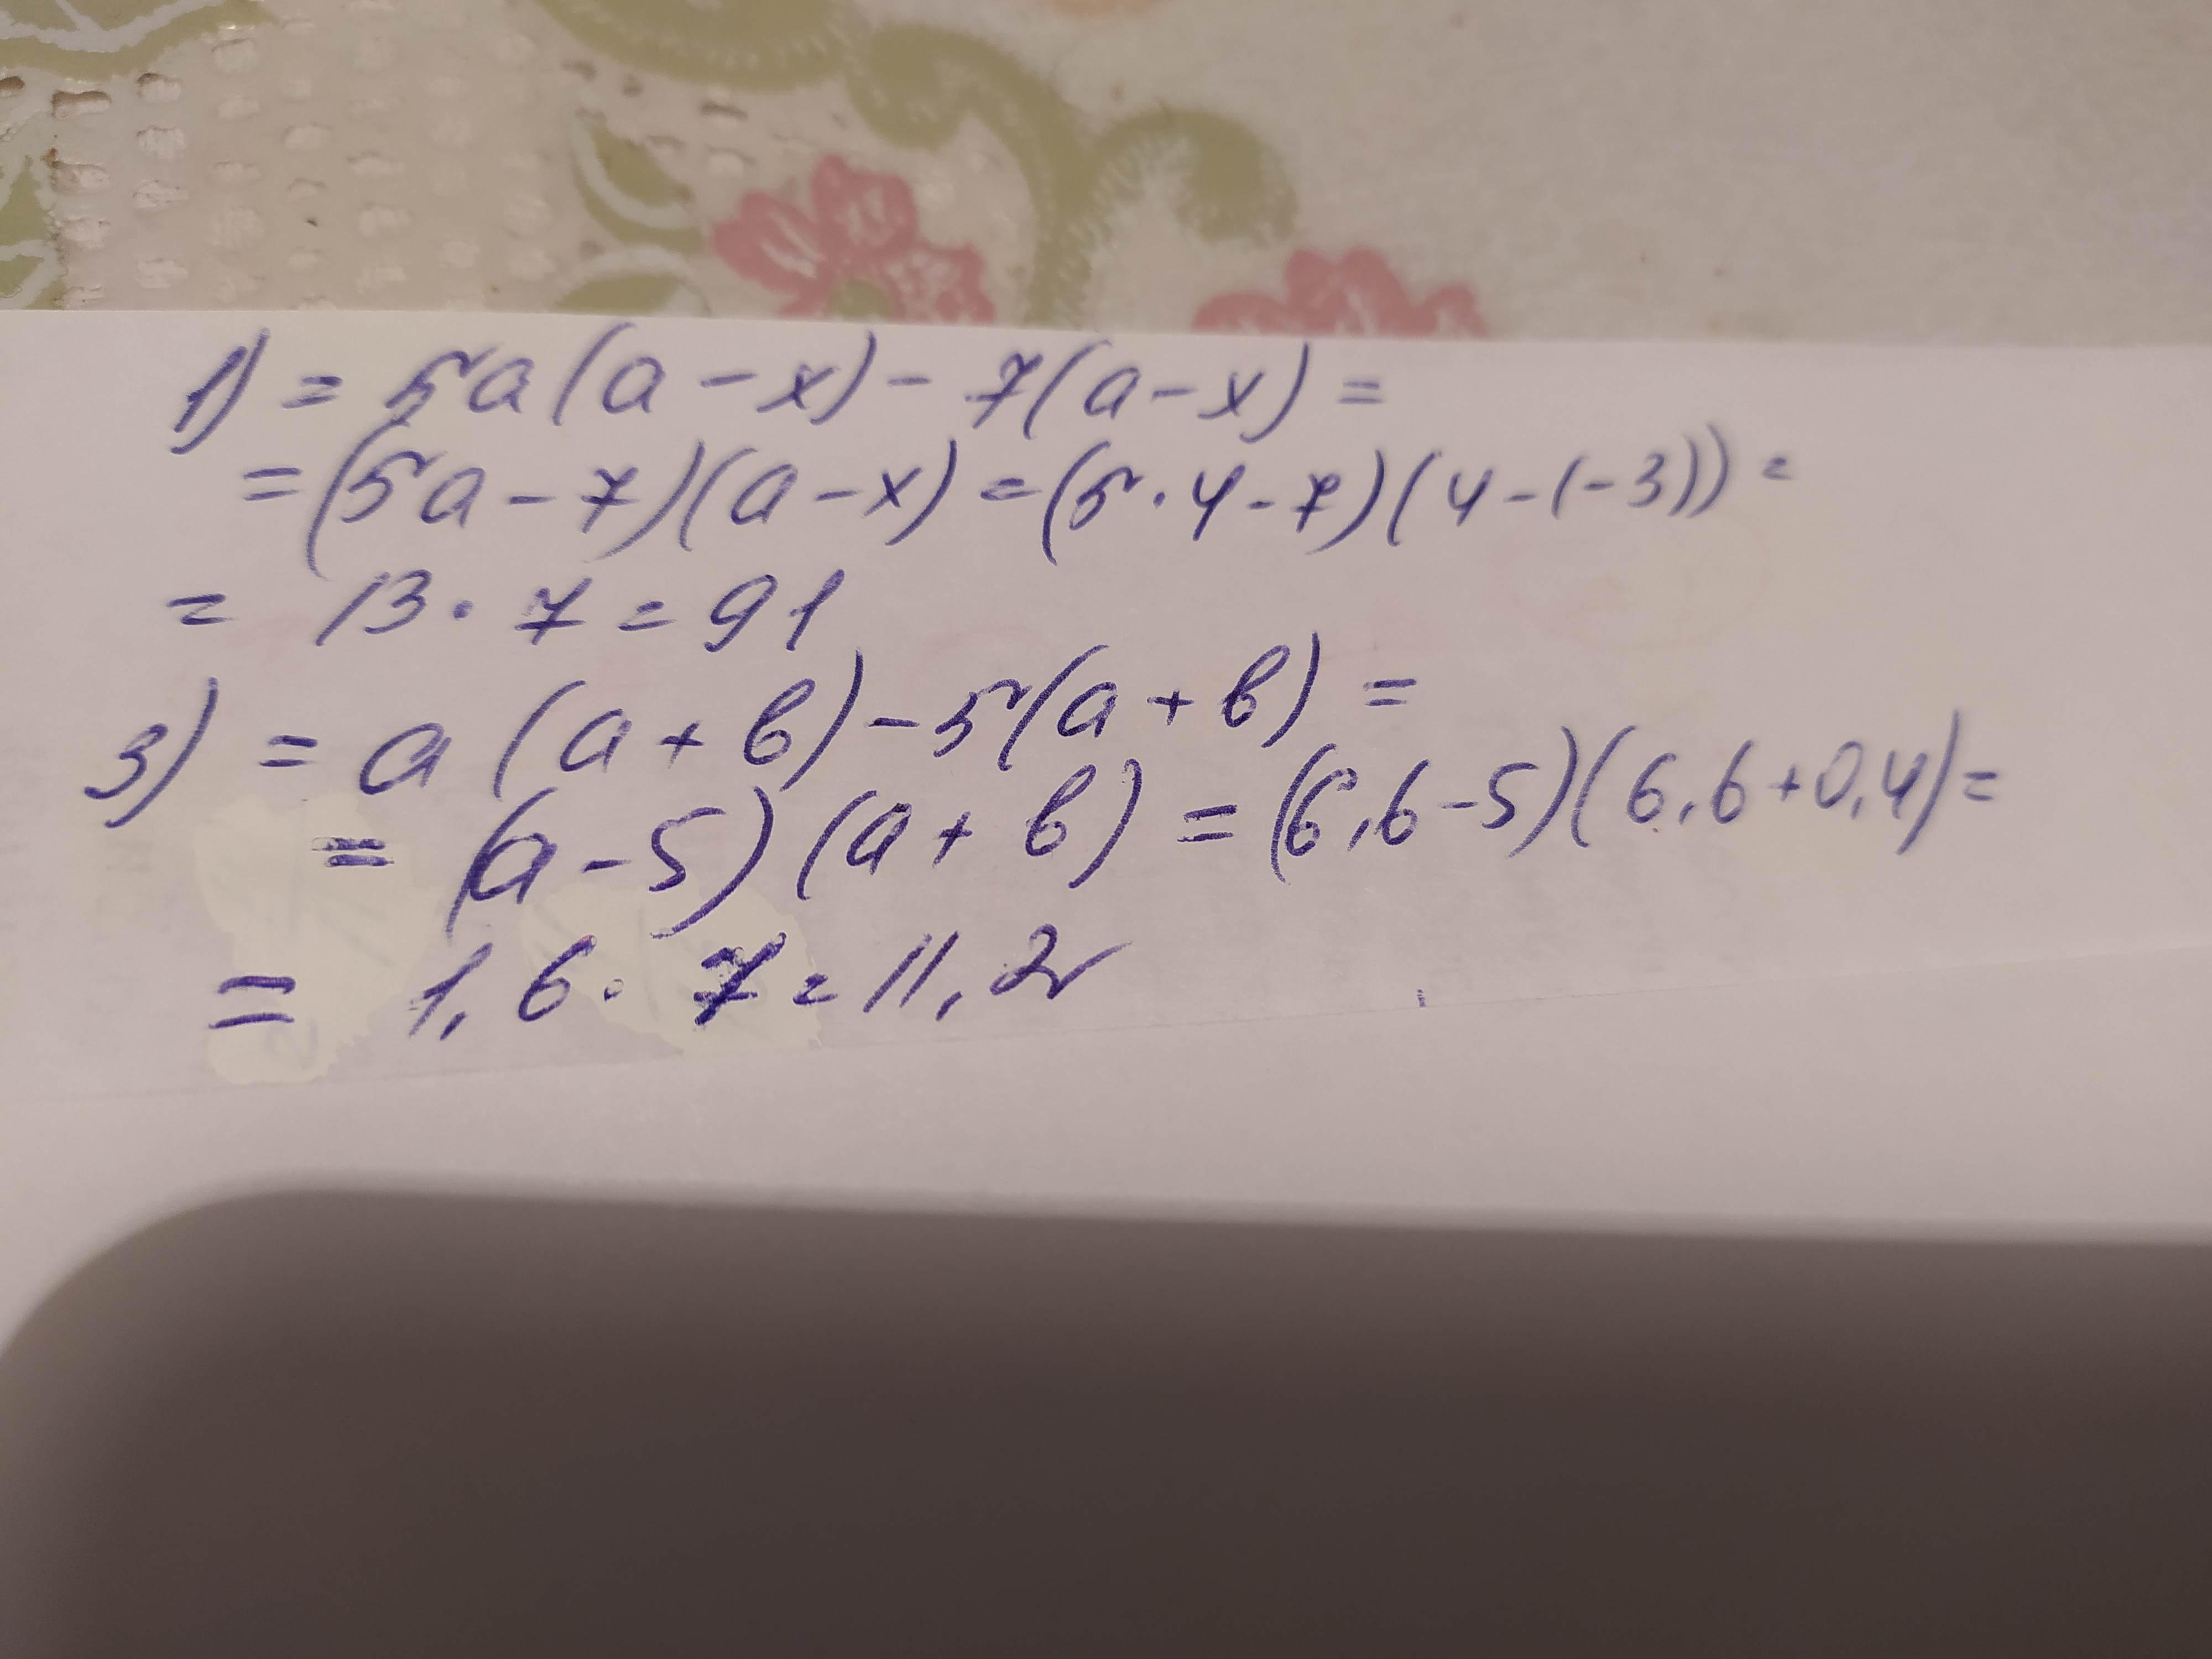 1) = 5a(a-x)-7(a-x)=
=(5a-7)(a-x)=(5·4-7)(4-(-3))=
= 13·7=91
3) = a(a+b)-5(a+b)=
= (a-5)(a+b)=(6,6-5)(6,6+0,4)=
= 1,6·7=11,2